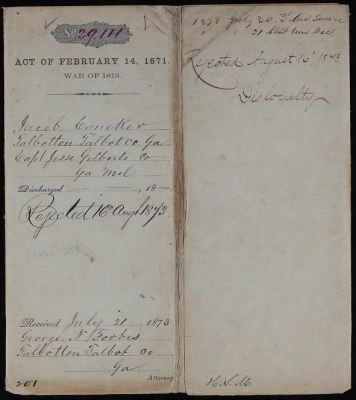 No. 29,111
ACT OF FEBRUARY 14, 1871.
WAR OF 1812.
Jacob
Talbotton Talbot Co Ga
Capt Jesse Gilberts Co
Ga Mil
Discharged 18
Rejected 16th Augt 1873
Received July 21, 1873
George N. Forbes
Talbotton Talbot Co
Ga
Attorney
201
1873 July 20. 3d Aud
" " 21
Rejected August 16th 1873
Disloyalty
H.S.M.